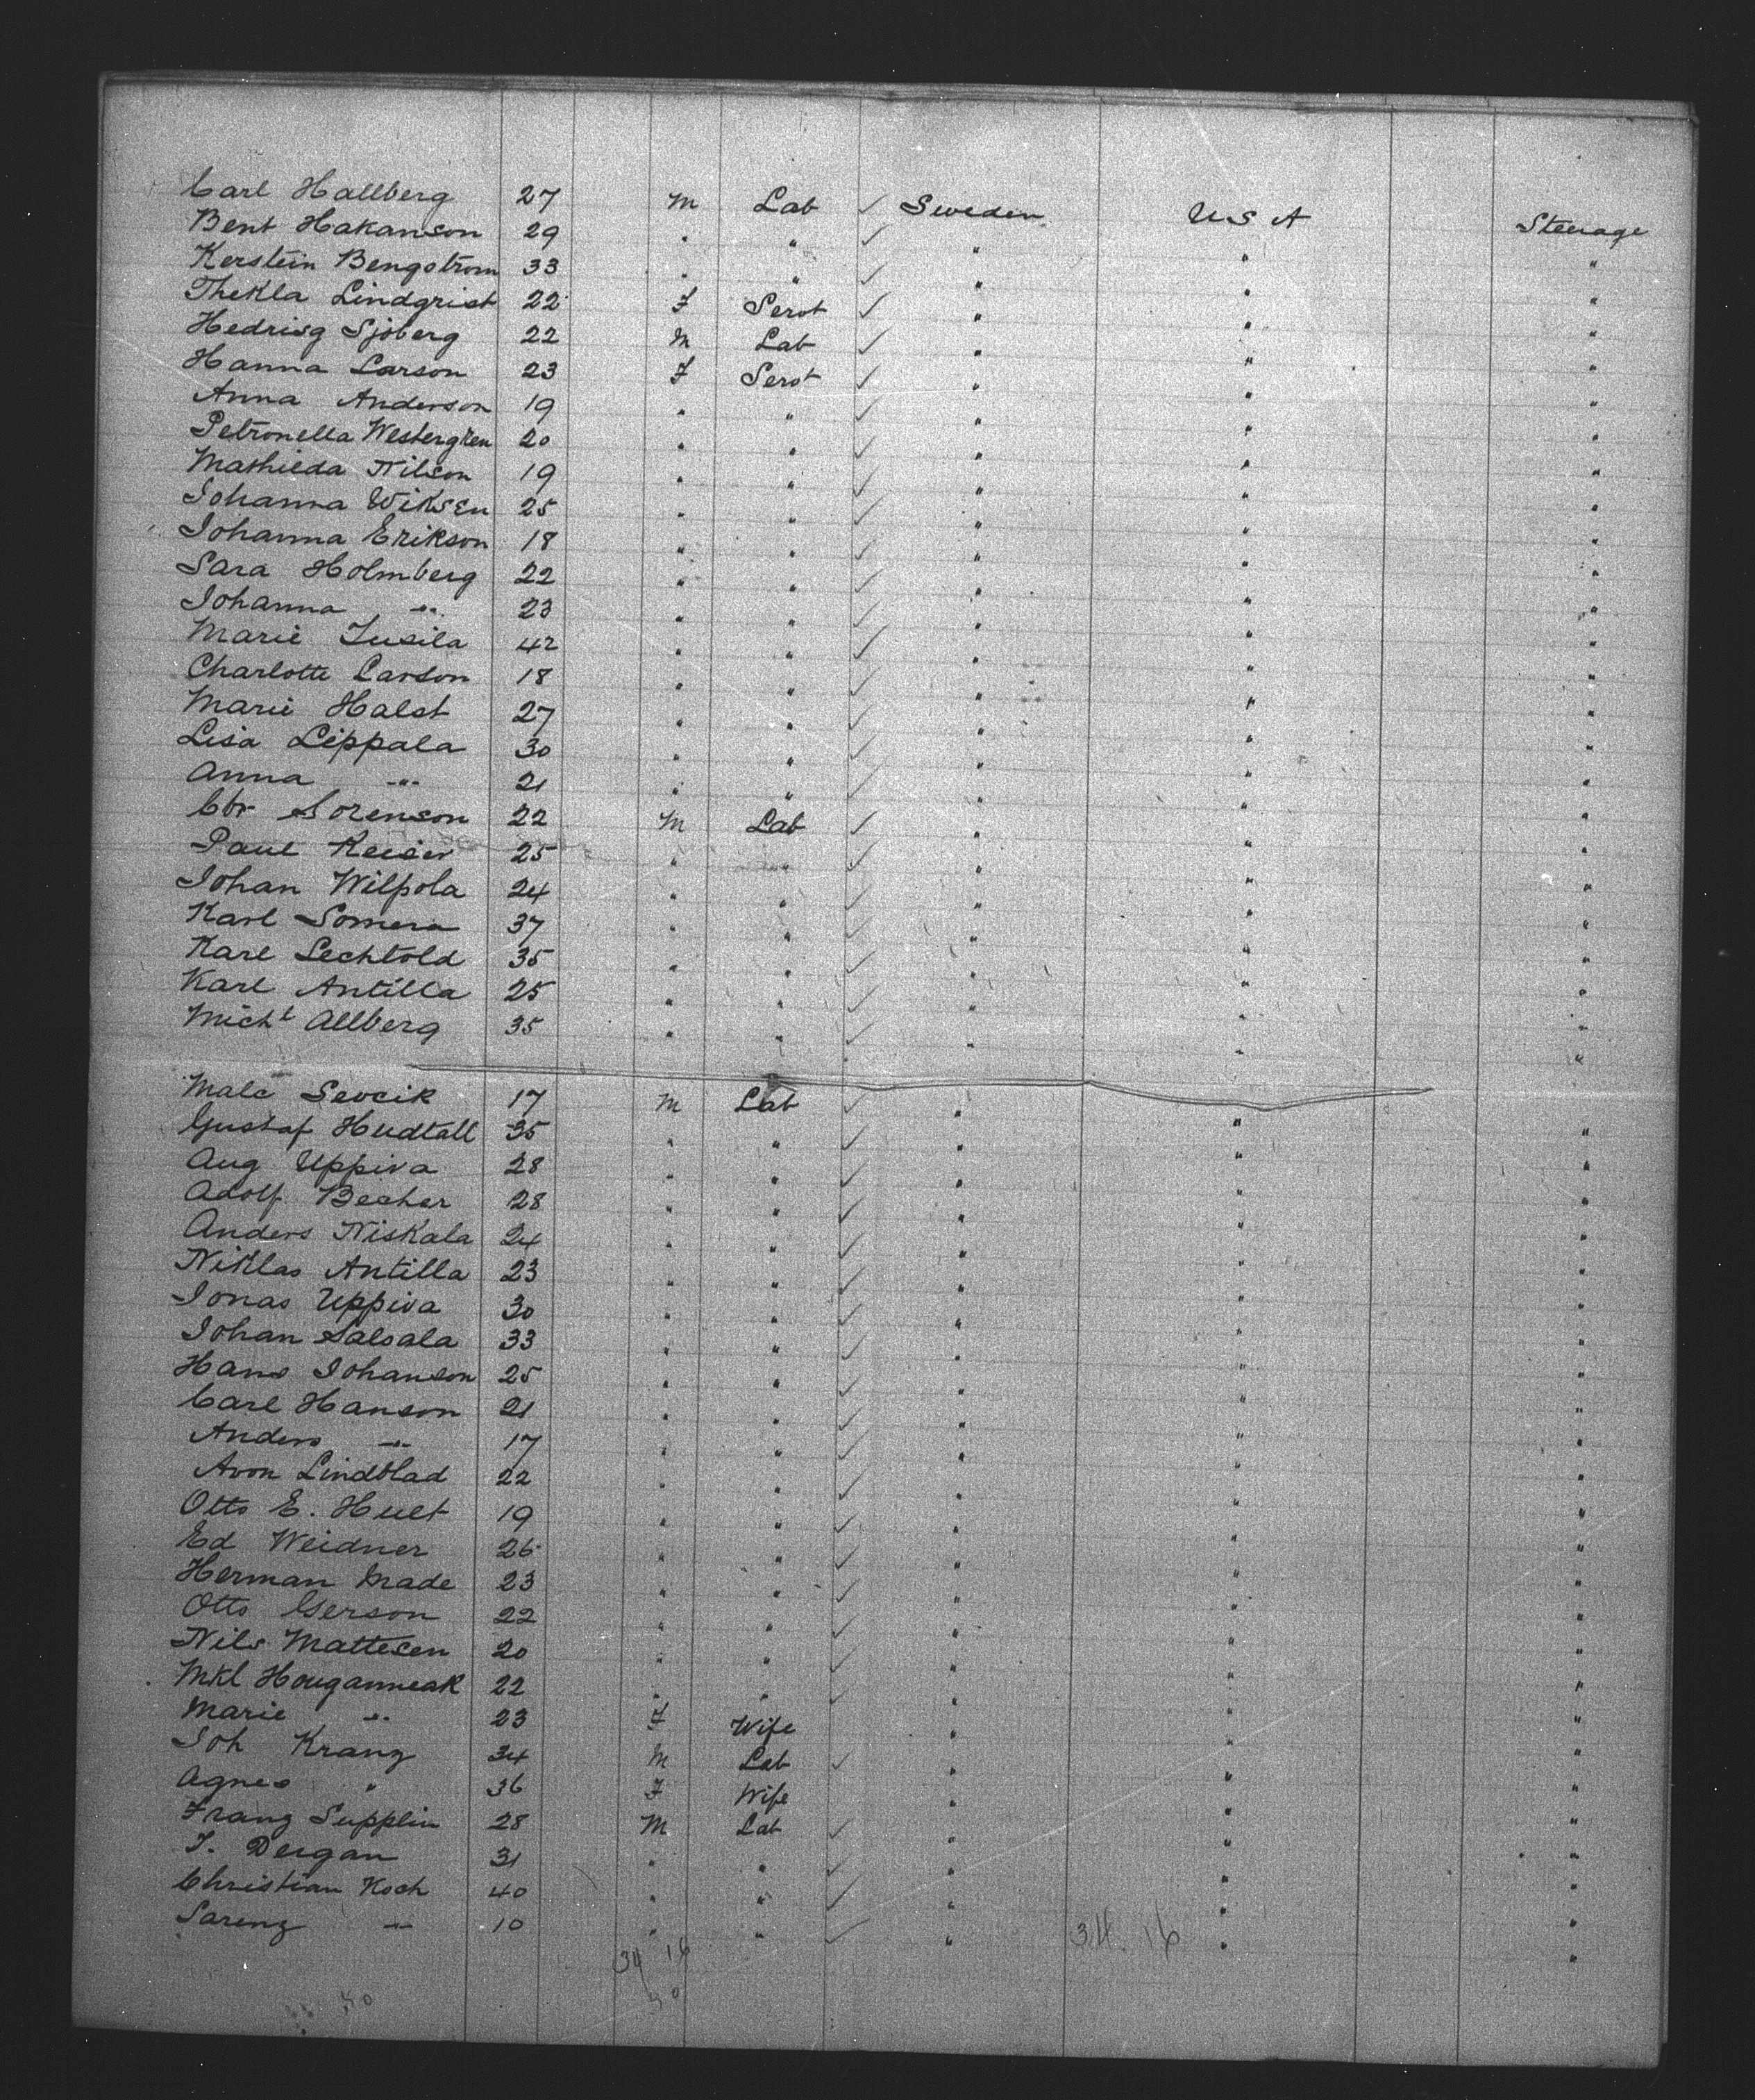 Carl Hallberg 27 M Lab ✓ Sweden U S A Steerage
Bent Hakanson 29 " " ✓ " " "
Kerstein Bengstrom 33 " " ✓ " " "
Thekla Lindgrist 22 F Servt ✓ " " "
Hedrisg Sjoberg 22 M Lab ✓ " " "
Hanna Larson 23 F Servt ✓ " " "
Anna Anderson 19 " " ✓ " " "
Petronella Westergren 20 " " ✓ " " "
Mathieda Nilson 19 " " ✓ " " "
Johanna Wiksen 25 " " ✓ " " "
Johanna Erikson 18 " " ✓ " " "
Sara Holmberg 22 " " ✓ " " "
Johanna -"- 23 " " ✓ " " "
Marie Jusila 42 " " ✓ " " "
Charlotte Larson 18 " " ✓ " " "
Marie Halst 27 " " ✓ " " "
Lisa Leppala 30 " " ✓ " " "
Anna -"- 21 " " ✓ " " "
Chr Sorenson 22 M Lab ✓ " " "
Paul Keiser 25 " " ✓ " " "
Johan Wilpola 24 " " ✓ " " "
Karl Somera 37 " " ✓ " " "
Karl Lechtold 35 " " ✓ " " "
Karl Antilla 25 " " ✓ " " "
Michl Allberg 35 " " ✓ " " "
Malc Sevcik 17 M Lab ✓ " " "
Gustaf Hudtall 35 " " ✓ " " "
Aug Uppiva 28 " " ✓ " " "
Adolf Becher 28 " " ✓ " " "
Anders Niskala 24 " " ✓ " " "
Niklas Antilla 23 " " ✓ " " "
Jonas Uppiva 30 " " ✓ " " "
Johan Salsala 33 " " ✓ " " "
Hans Johanson 25 " " ✓ " " "
Carl Hanson 21 " " ✓ " " "
Anders -"- 17 " " ✓ " " "
Avon Lindblad 22 " " ✓ " " "
Otto E. Huet 19 " " ✓ " " "
Ed Weidner 26 " " ✓ " " "
Herman Made 23 " " ✓ " " "
Otto Gerson 22 " " ✓ " " "
Nils Mattesen 20 " " ✓ " " "
Mkl Houganneak 22 " " ✓ " " "
Marie -"- 23 F Wife " " "
Joh Kranz 34 M Lab ✓ " " "
Agnes " 36 F Wife " " "
Franz Supplin 28 M Lab ✓ " " "
J. Deigan 31 " " ✓ " " "
Christian Koch 40 " " ✓ " " "
Sarenz -"- 10 " " ✓ " " "
34 16 34 16
50 50